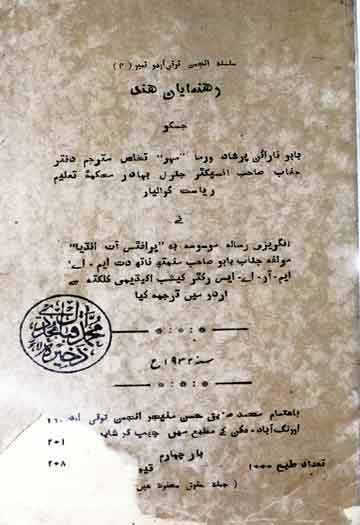 سلسلۂ انجمن ترقی اُردو نمبر (۳)
رهنمایان هند
جسکو
بابو نارائن پرشاد ورما "مهر" تخلص مترجم دفتر
جناب صاحب انسپکٹر جنرل بہادر محکمۂ تعلیم
ریاست گوالیار
نے
انگریزی رسالہ موسومہ بہ "پرافٹس آف انڈیا"
مولفہ جناب بابو صاحب منمتھ ناتھ دت ایم۔اے
ایم۔آر۔اے۔ایس رکٹر کیشب اکیڈیمی کلکتہ سے
اردو میں ترجمہ کیا
سنہ ۱۹۳۲ ع
باهتمام محمد صدیق حسن منیجر انجمن ترقی
اورنگ آباد۔دکن کے مطبع میں چھپ کر شایع
۲۰۱
بار چہارم
تعداد طبع ۱۰۰۰
۲۰۸
( جملہ حقوق محفوظ هیں )
محمد اقبال مجددی
ذخیرہ